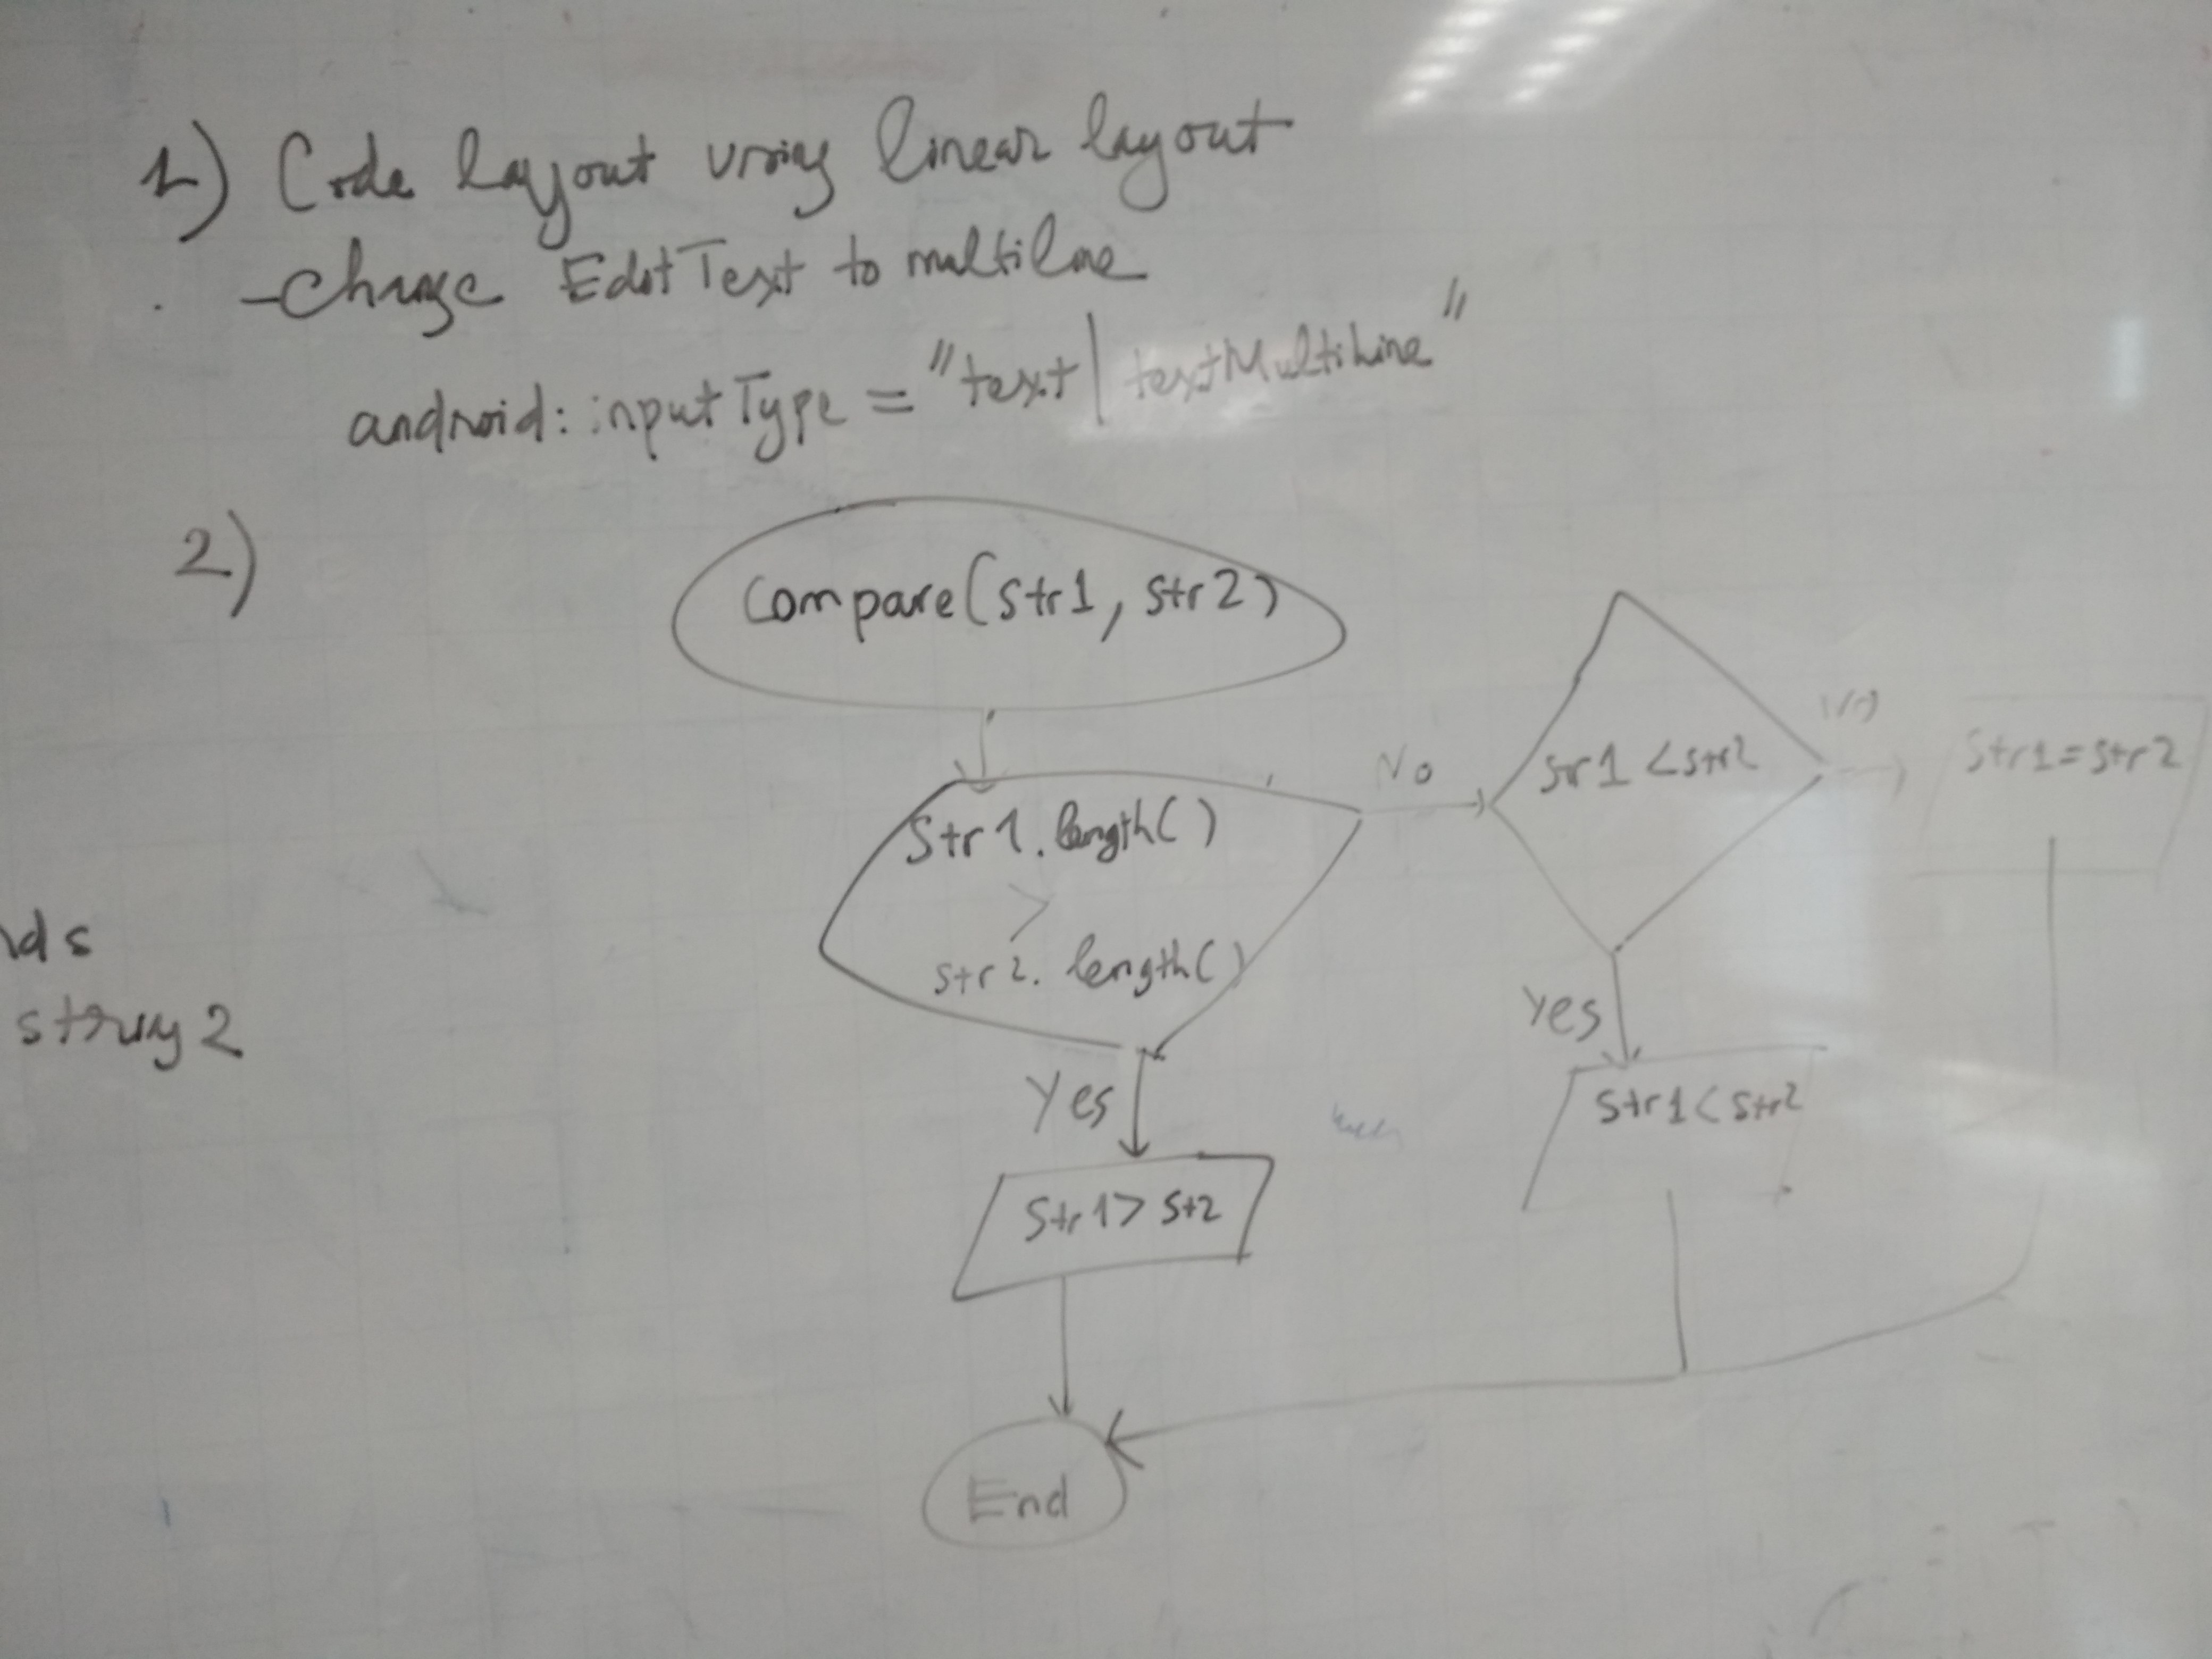 1) Code layout using linear layout
- Change EditText to multiline
android:inputType="text|textMultiLine"
2)
Compare(str1, str2)
Str1.length()
>
str2.length()
No
str1 <str2
No
Str1=str2
Yes
Str1> St2
Yes
Str1< Str2
End
nds
string2